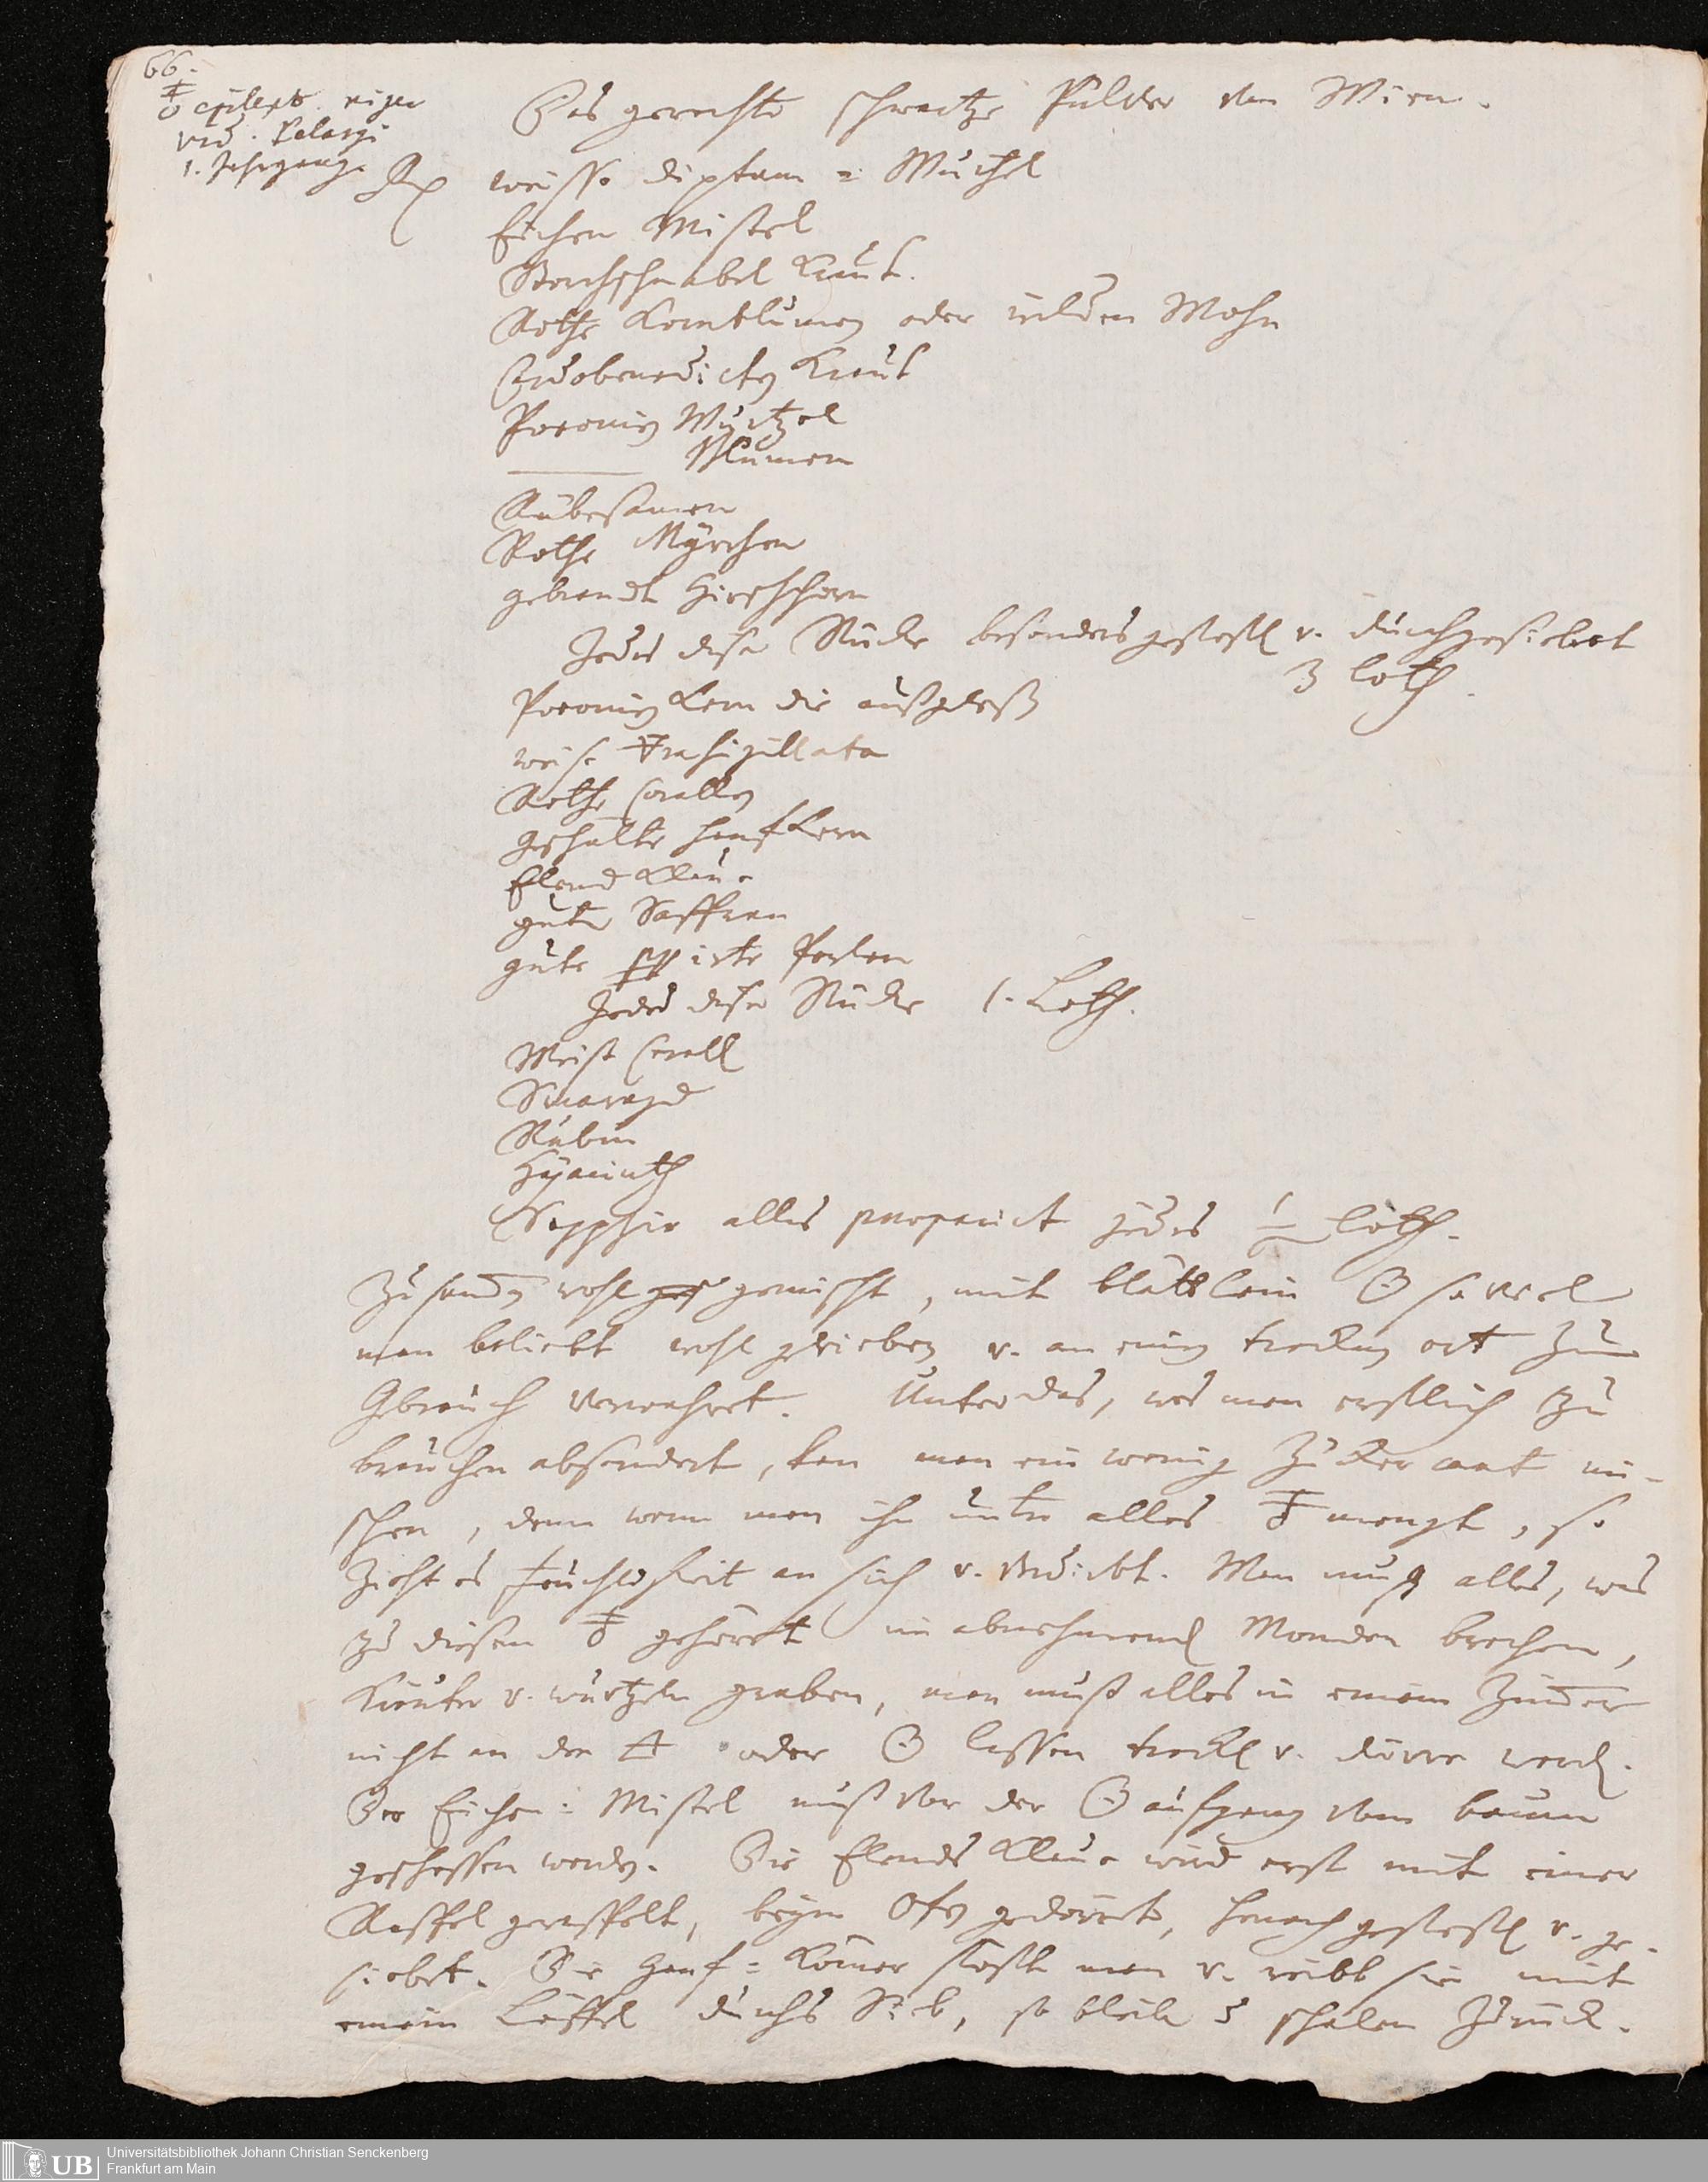 66.
🜿 epilept. niger
vid. Pelargi
1. Jahrgang.
Das gerechte schwartze Pulver von Wien.
Rp weisse diptam = Wurtzel
Eichen Mistel
Storchschnabel Kraut.
Rothe Kornblumen oder wilden Mohn
Cardobenedicten Kraut
Poeonien Wurtzel
——— Blumen
Rübesamen
Rothe Myrrhen
gebrandt Hirschhorn
Jedes diser Stücke besonders gestossen v. durchgesiebet
3 loth.
Poeonien Kern die außgelesen
weise 🜃ra sigillata
Rothe Corallen
geschälte Hanf Kern
Elend Klau
guter Saffran
gute ppirte Perlen
Jedes diser Stücke 1. Loth.
Weise Corall
Smaragd
Rubin
Hyacinth
Sapphir alles praeparirt jedes ½ loth.
Zusamen wohl gemischt, mit blättlein ☉ so viel
man beliebt wohl gerieben v. an einen trocknen ort zum
Gebrauch verwahret. Unter das, was man erstlich zu
brauchen absondert, kan man ein wenig Zucker cant mi-
schen, denn wenn man ihn unter alles 🜿 mengt, so
zieht es feuchtigkeit an sich v. verdirbt. Man muß alles, was
zu diesen 🜿 gehöret im abnehmenden Monden brechen,
Kräuter v. wurtzeln graben, man muß alles in einem Zimmer
nicht an der 🜁 oder ☉ lassen trocken v. dürre werden.
Der Eichen = Mistel muß vor der ☉ aufgang vom baum
geschossen werden. Die Elends Klaue wird erst mit einer
Raspel geraspelt, beym Ofen gedörret, hernach gestossen v. ge-
siebet. Die Hanf = Körner stost man v. reibt sie mit
einem Löffel durchs Sieb, so bleiben d schalen zurück.
Universitätsbibliothek Johann Christian Senckenberg
Frankfurt am Main
UB